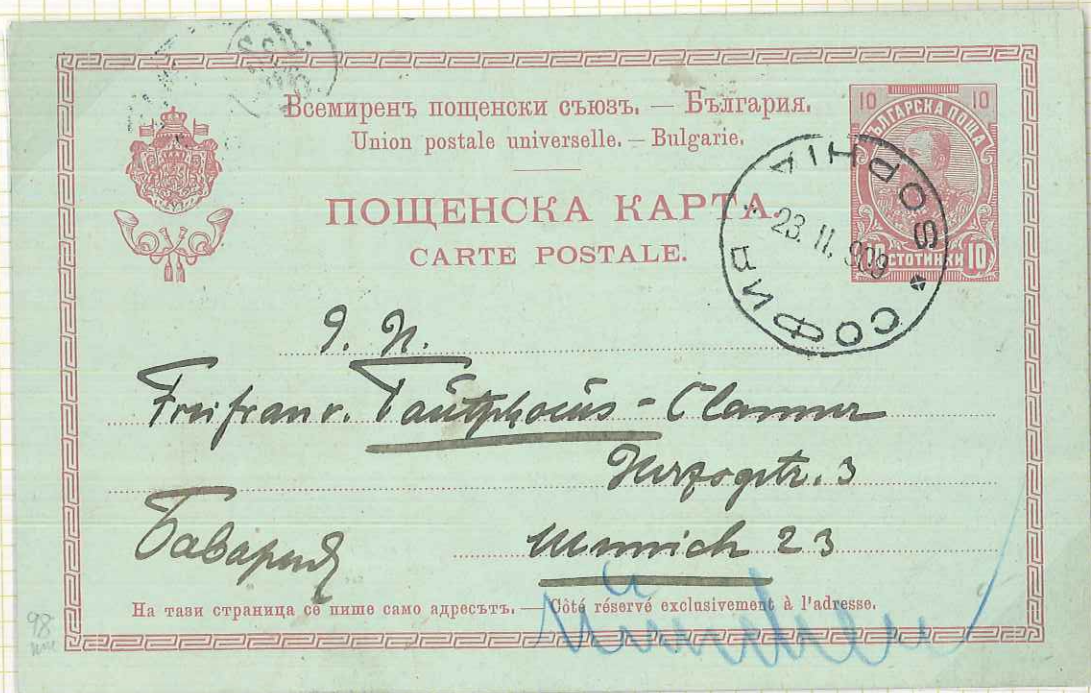 Всемиренъ пощенски съюзъ. — България.
Union postale universelle. — Bulgarie.
ПОЩЕНСКА КАРТА
CARTE POSTALE.
10 10
БЪЛГАРСКА ПОЩА
10 СТОТИНКИ 10
СОФИЯ
23.II.909
SOPHIA
I. H.
Freifrau v. Tautphoeus - Clammer
Herzogstr. 3
Бавария
Munich 23
München
На тази страница се пише само адресътъ. — Côté réservé exclusivement à l'adresse.
98